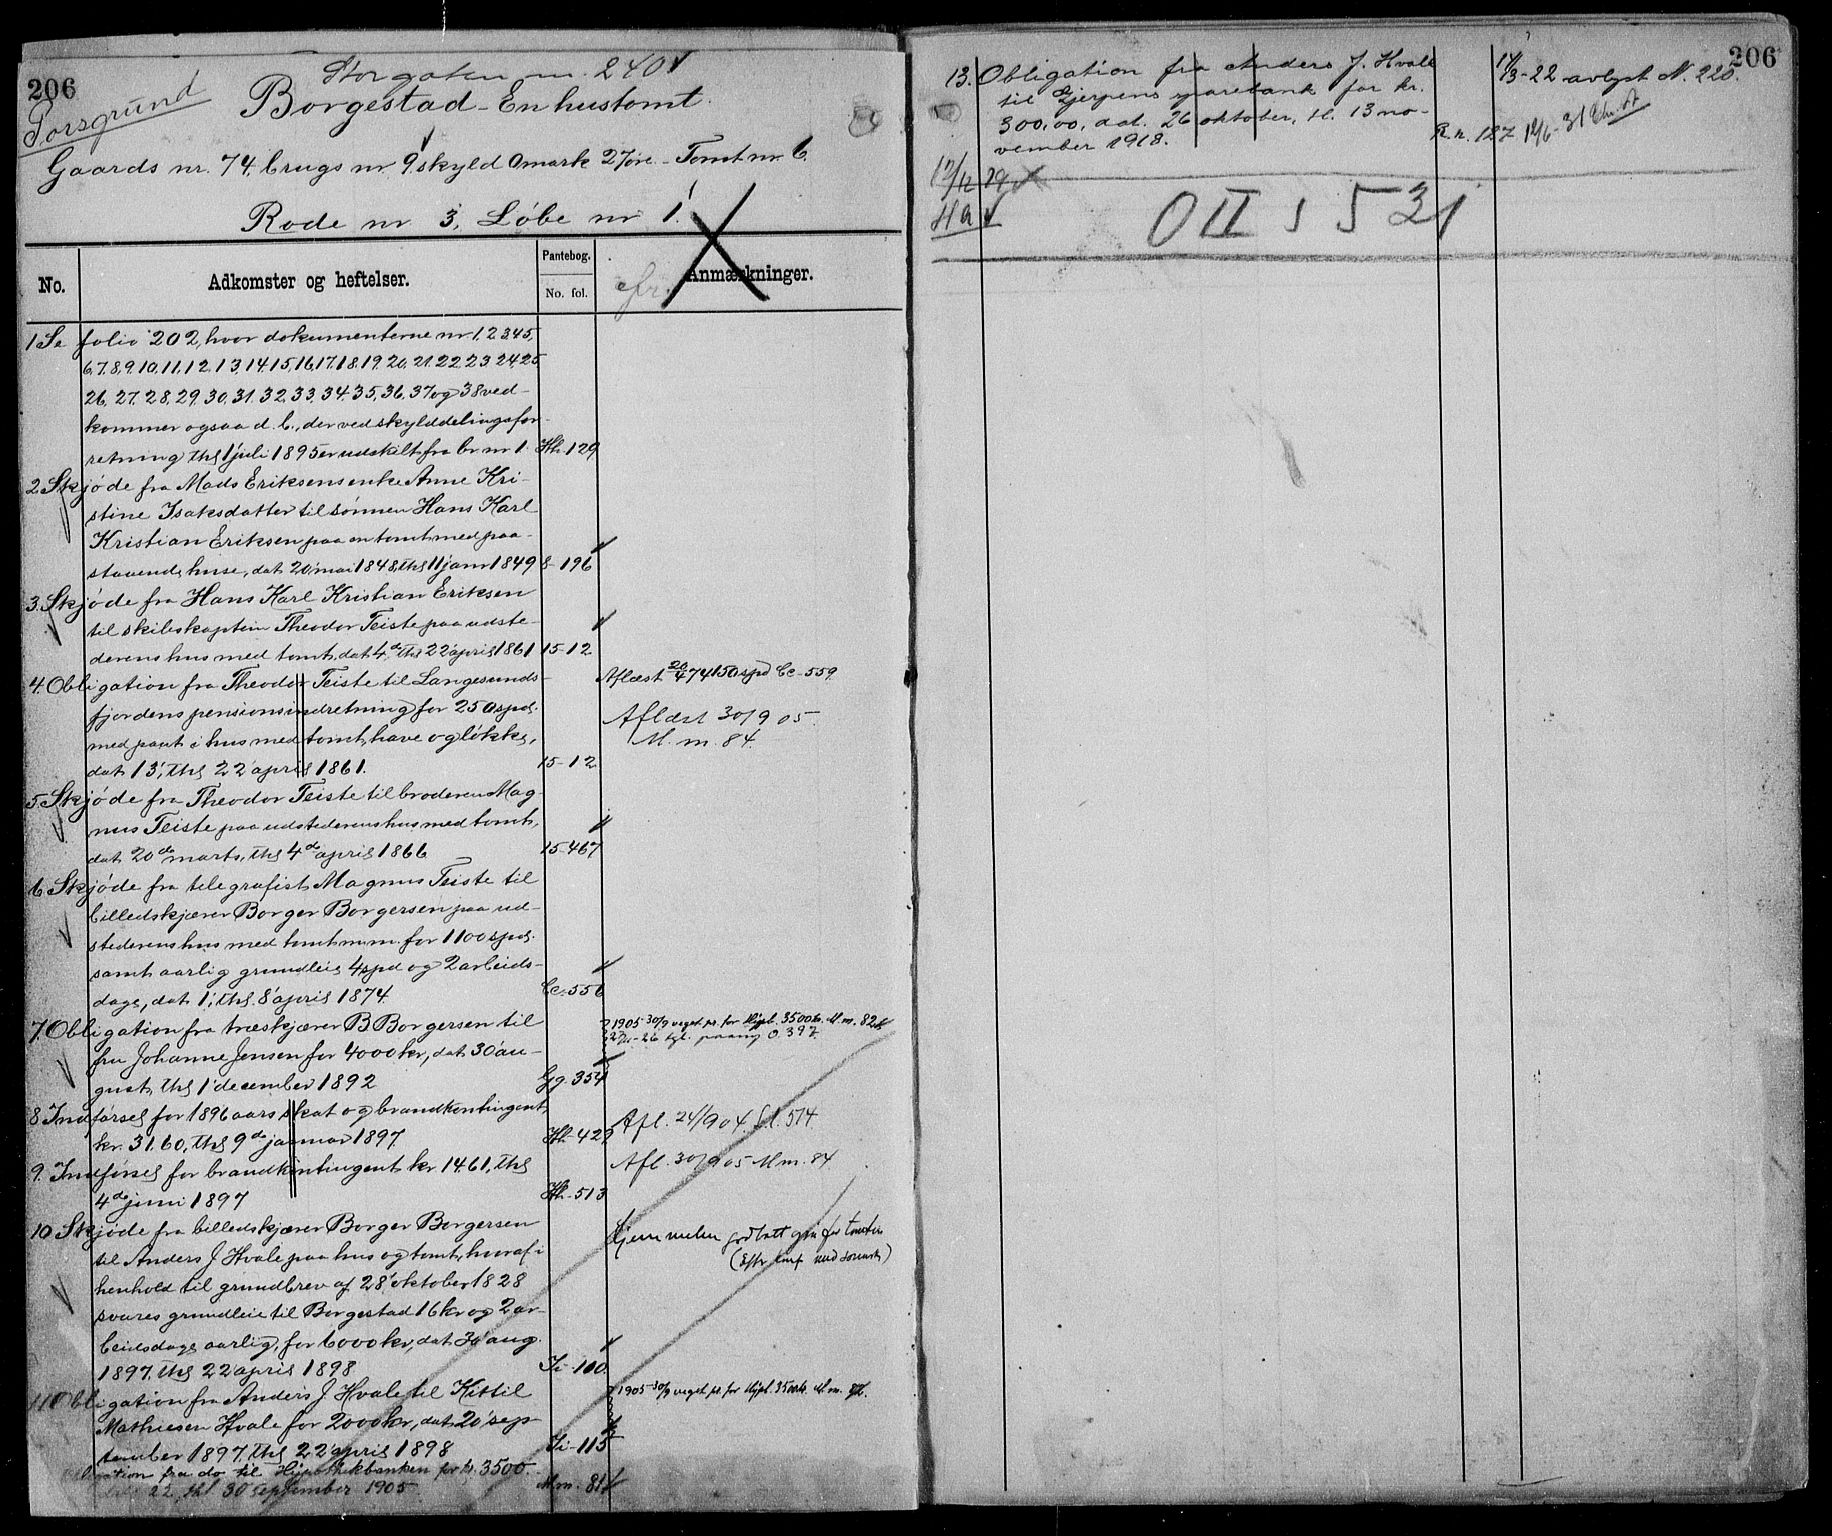 206
Storgaten nr. 240
Porsgrund
Borgestad - En hustomt.
Gaards nr. 74, brugs nr. 9, skyld 0 mark 27 øre. - Tomt nr. 6.
Rode nr 3, Løbe nr 1.
No.
Adkomster og heftelser.
Pantebog.
No. fol.
cfr.
Anmærkninger.
1 Se folio 202, hvor dokumenterne nr 1, 2 3 4 5,
6, 7, 8, 9, 10, 11, 12, 13, 14, 15, 16, 17, 18, 19, 20, 21, 22, 23, 24, 25
26, 27, 28, 29, 30, 31, 32, 33, 34, 35, 36, 37 og 38 ved-
kommer ogsaa d. b., der ved skylddelingsfor-
retning thl 1 juli 1895 er udskilt fra br. nr 1. Hh. 129
2. Skjøde fra Mads Eriksens enke Anne Kri-
stine Isaksdatter til sønnen Hans Karl
Kristian Eriksen paa en tomt med paa-
staaende huse, dat 20 mai 1848, thl 11 janr 1849 8-196
3. Skjøde fra Hans Karl Kristian Eriksen
til skibskaptein Theodor Teiste paa udste-
derens hus med tomt, dat 4de thl 22 april 1861 15-12
4. Obligation fra Theodor Teiste til Langesunds-
fjordens pensionsindretning for 250 spd.
med pant i hus med tomt, have og løkke,
dat 13, thl 22 april 1861. 15-12
Aflæst 20/4 74 150 spd Cc-559.
Aflæst 30/9 05.
M. m. 84.
5 Skjøde fra Theodor Teiste til broderen Mag-
nus Teiste paa udstederens hus med tomt,
dat 20de marts, thl 4de april 1866 15-467
6 Skjøde fra telegrafist Magnus Teiste til
billedskjærer Borger Borgersen paa ud-
stederens hus med tomt m. m. for 1100 spd.
samt aarlig grundleie 4 spd og 2 arbeids-
dage, dat 1, thl. 8 april 1874 Cc-556
7. Obligation fra træskjærer B. Borgersen til
fru Johanne Jensen for 4000 kr, dat 30 au-
gust, thl 1 december 1892 Gg. 354
1905 30/9 veget pr. for Hypt. 3500 k. M. m. 82
8 Indførsel for 1896 aars skat og brandkontingent,
kr. 31.60, thl 9de januar 1897. Hh-429
Afl. 24/9 04. Ll. 574
9. Indførsel for brandkontingent kr 14.61, thl
4de juni 1897 Hh-513
Afl. 30/9 05 M m. 84
10 Skjøde fra billedskjærer Borger Borgersen
til Anders J Hvale paa hus og tomt, hvoraf i
henhold til grundbrev af 28 oktober 1828
svares grundleie til Borgestad 16 kr og 2 ar-
beidsdage aarlig, for 6000 kr, dat 30 aug.
1897, thl 22 april 1898 Ii-110.
Hjemmelen godtatt for tomten
11 Obligation fra Anders J Hvale til Kittil
Mathiesen Hvale for 2000 kr, dat 20 sep-
tember 1897, thl 22 april 1898 Ii-115
1905 30/9 veget pr. for Hypt. 3500 k. M. m. 82.
fra do til Hypothekbanken for kr. 3500.-
22, thl 30 september 1905. M m. 81
206
13. Obligation fra Anders J. Hvale
til Gjerpens sparebank for kr.
300,00, dat. 26 oktober, tl. 13 no-
vember 1918.
R. n. 127
3-22 avlyst N. 220.
O II s 531